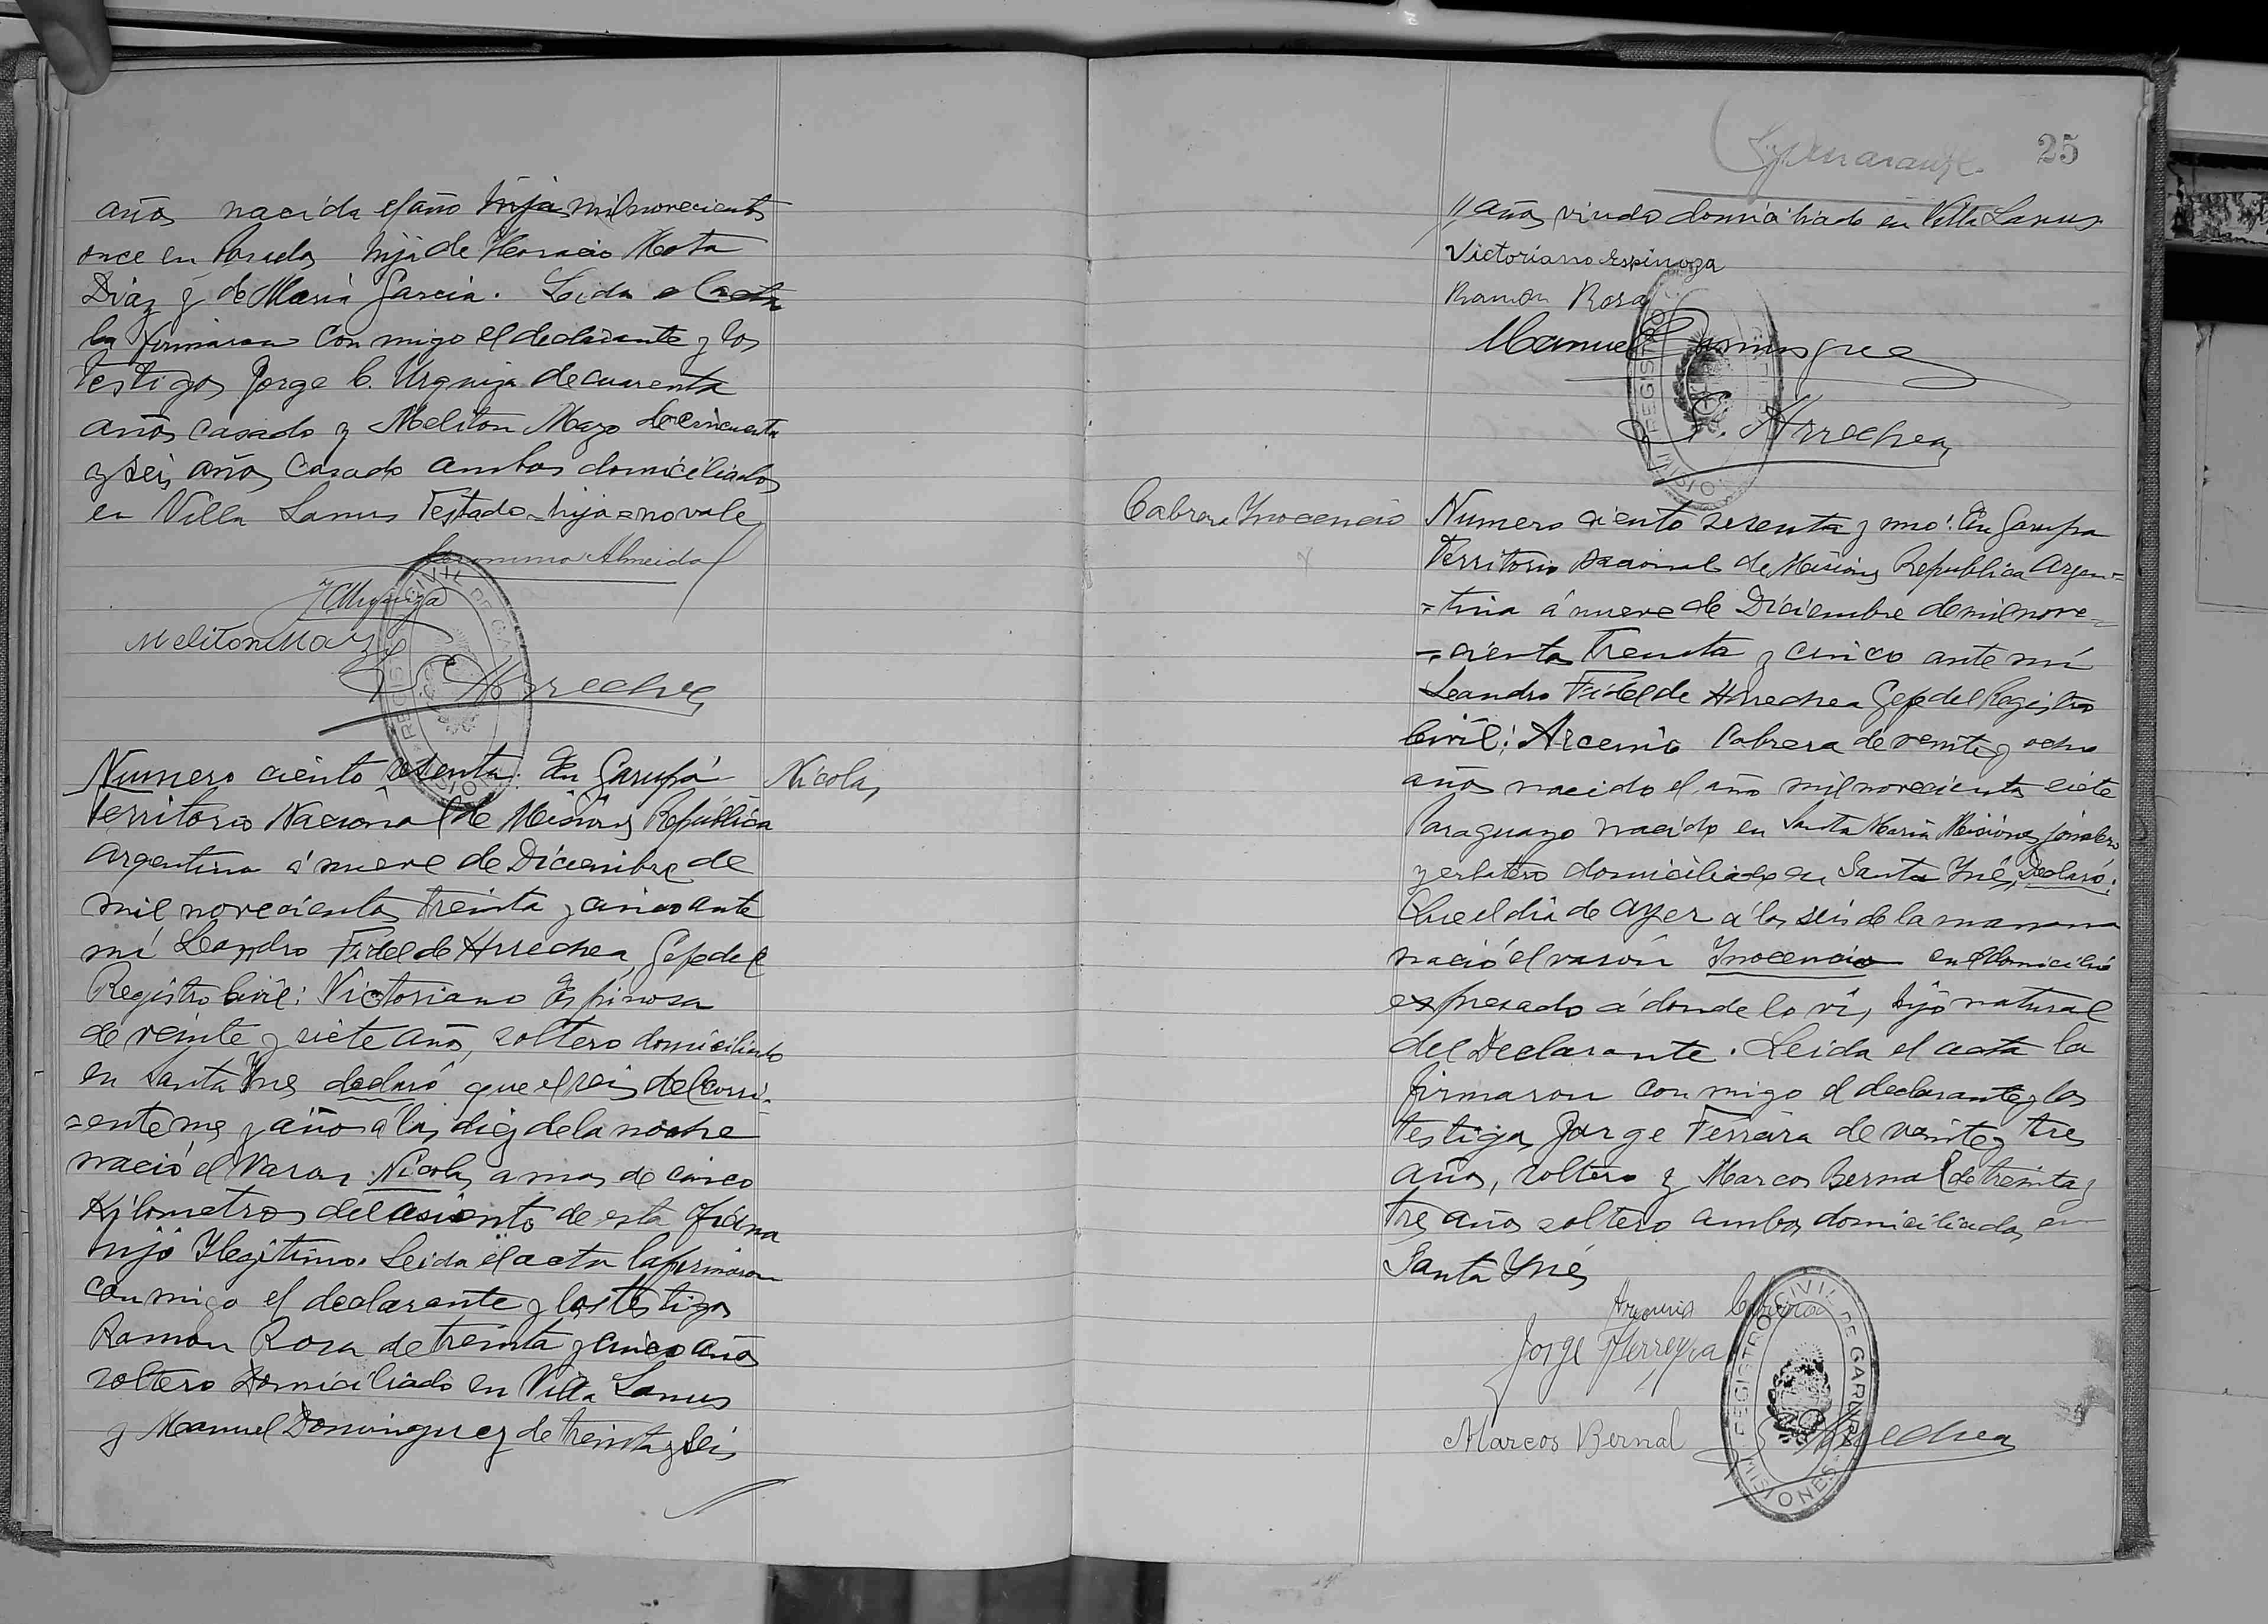 años nacida el año hija mil novecientos
once en Posadas hija de Horacio Mota
Diaz y de Maria Garcia. Leida el acta
la firmaron conmigo el declarante y los
testigos Jorge C. Urquiza de cuarenta
años casado y Meliton Mazo de cincuenta
y seis años casado ambos domiciliados
en Villa Lanus Testado=hija=no vale
Almeida
JCUrquiza
Meliton Mazo
Arrechea
REGISTRO CIVIL DE GARUPA MISIONES
Numero ciento sesenta. En Garupá
Nicolas
Territorio Nacional de Misiones República
Argentina á nueve de Diciembre de
mil novecientos treinta y cinco ante
mí Leandro Fidel de Arrechea Gefe del
Registro Civil: Victoriano Espinosa
de veinte y siete años, soltero domiciliado
en Santa Ines declaró que el seis del corri=
=ente mes y año á las diez de la noche
nació el varon Nicolas a mas de cinco
Kilometros del asiento de esta oficina
hijo Ilegitimo. Leida el acta la firmaron
conmigo el declarante y los testigos
Ramon Rosa de treinta y cinco años
soltero Domiciliado en Villa Lanus
y Manuel Dominguez de treinta y seis
25
// años viudo domiciliado en Villa Lanus
Victoriano Espinoza
Ramon Rosa
Manuel Dominguez
Arrechea
REGISTRO CIVIL MISIONES
Cabrera Ynocencio
Numero ciento sesenta y uno: En Garupa
Territorio Nacional de Misiones Republica Argen=
=tina á nueve de Diciembre de mil nove=
=cientos treinta y cinco ante mí
Leandro Fidel de Arrechea Gefe del Registro
Civil: Arcenio Cabrera de veinte y ocho
años nacido el año mil novecientos siete
Paraguayo nacido en Santa Maria Misiones jornalero
yerbatero domiciliado en Santa Ynés, Declaró:
Que el dia de ayer á las seis de la manana
nació el varón Ynocencio en el domicilio
expresado á donde lo ví, hijo natural
del Declarante. Leida el acta la
firmaron conmigo el declarante y los
testigos Jorge Ferreira de veinte y tres
años, soltero y Marcos Bernal de treinta y
tres años soltero ambos domiciliados en
Santa Ynés
Arcenio Cabrera
Jorge Ferreyra
Marcos Bernal
Arrechea
REGISTRO CIVIL DE GARUPA MISIONES